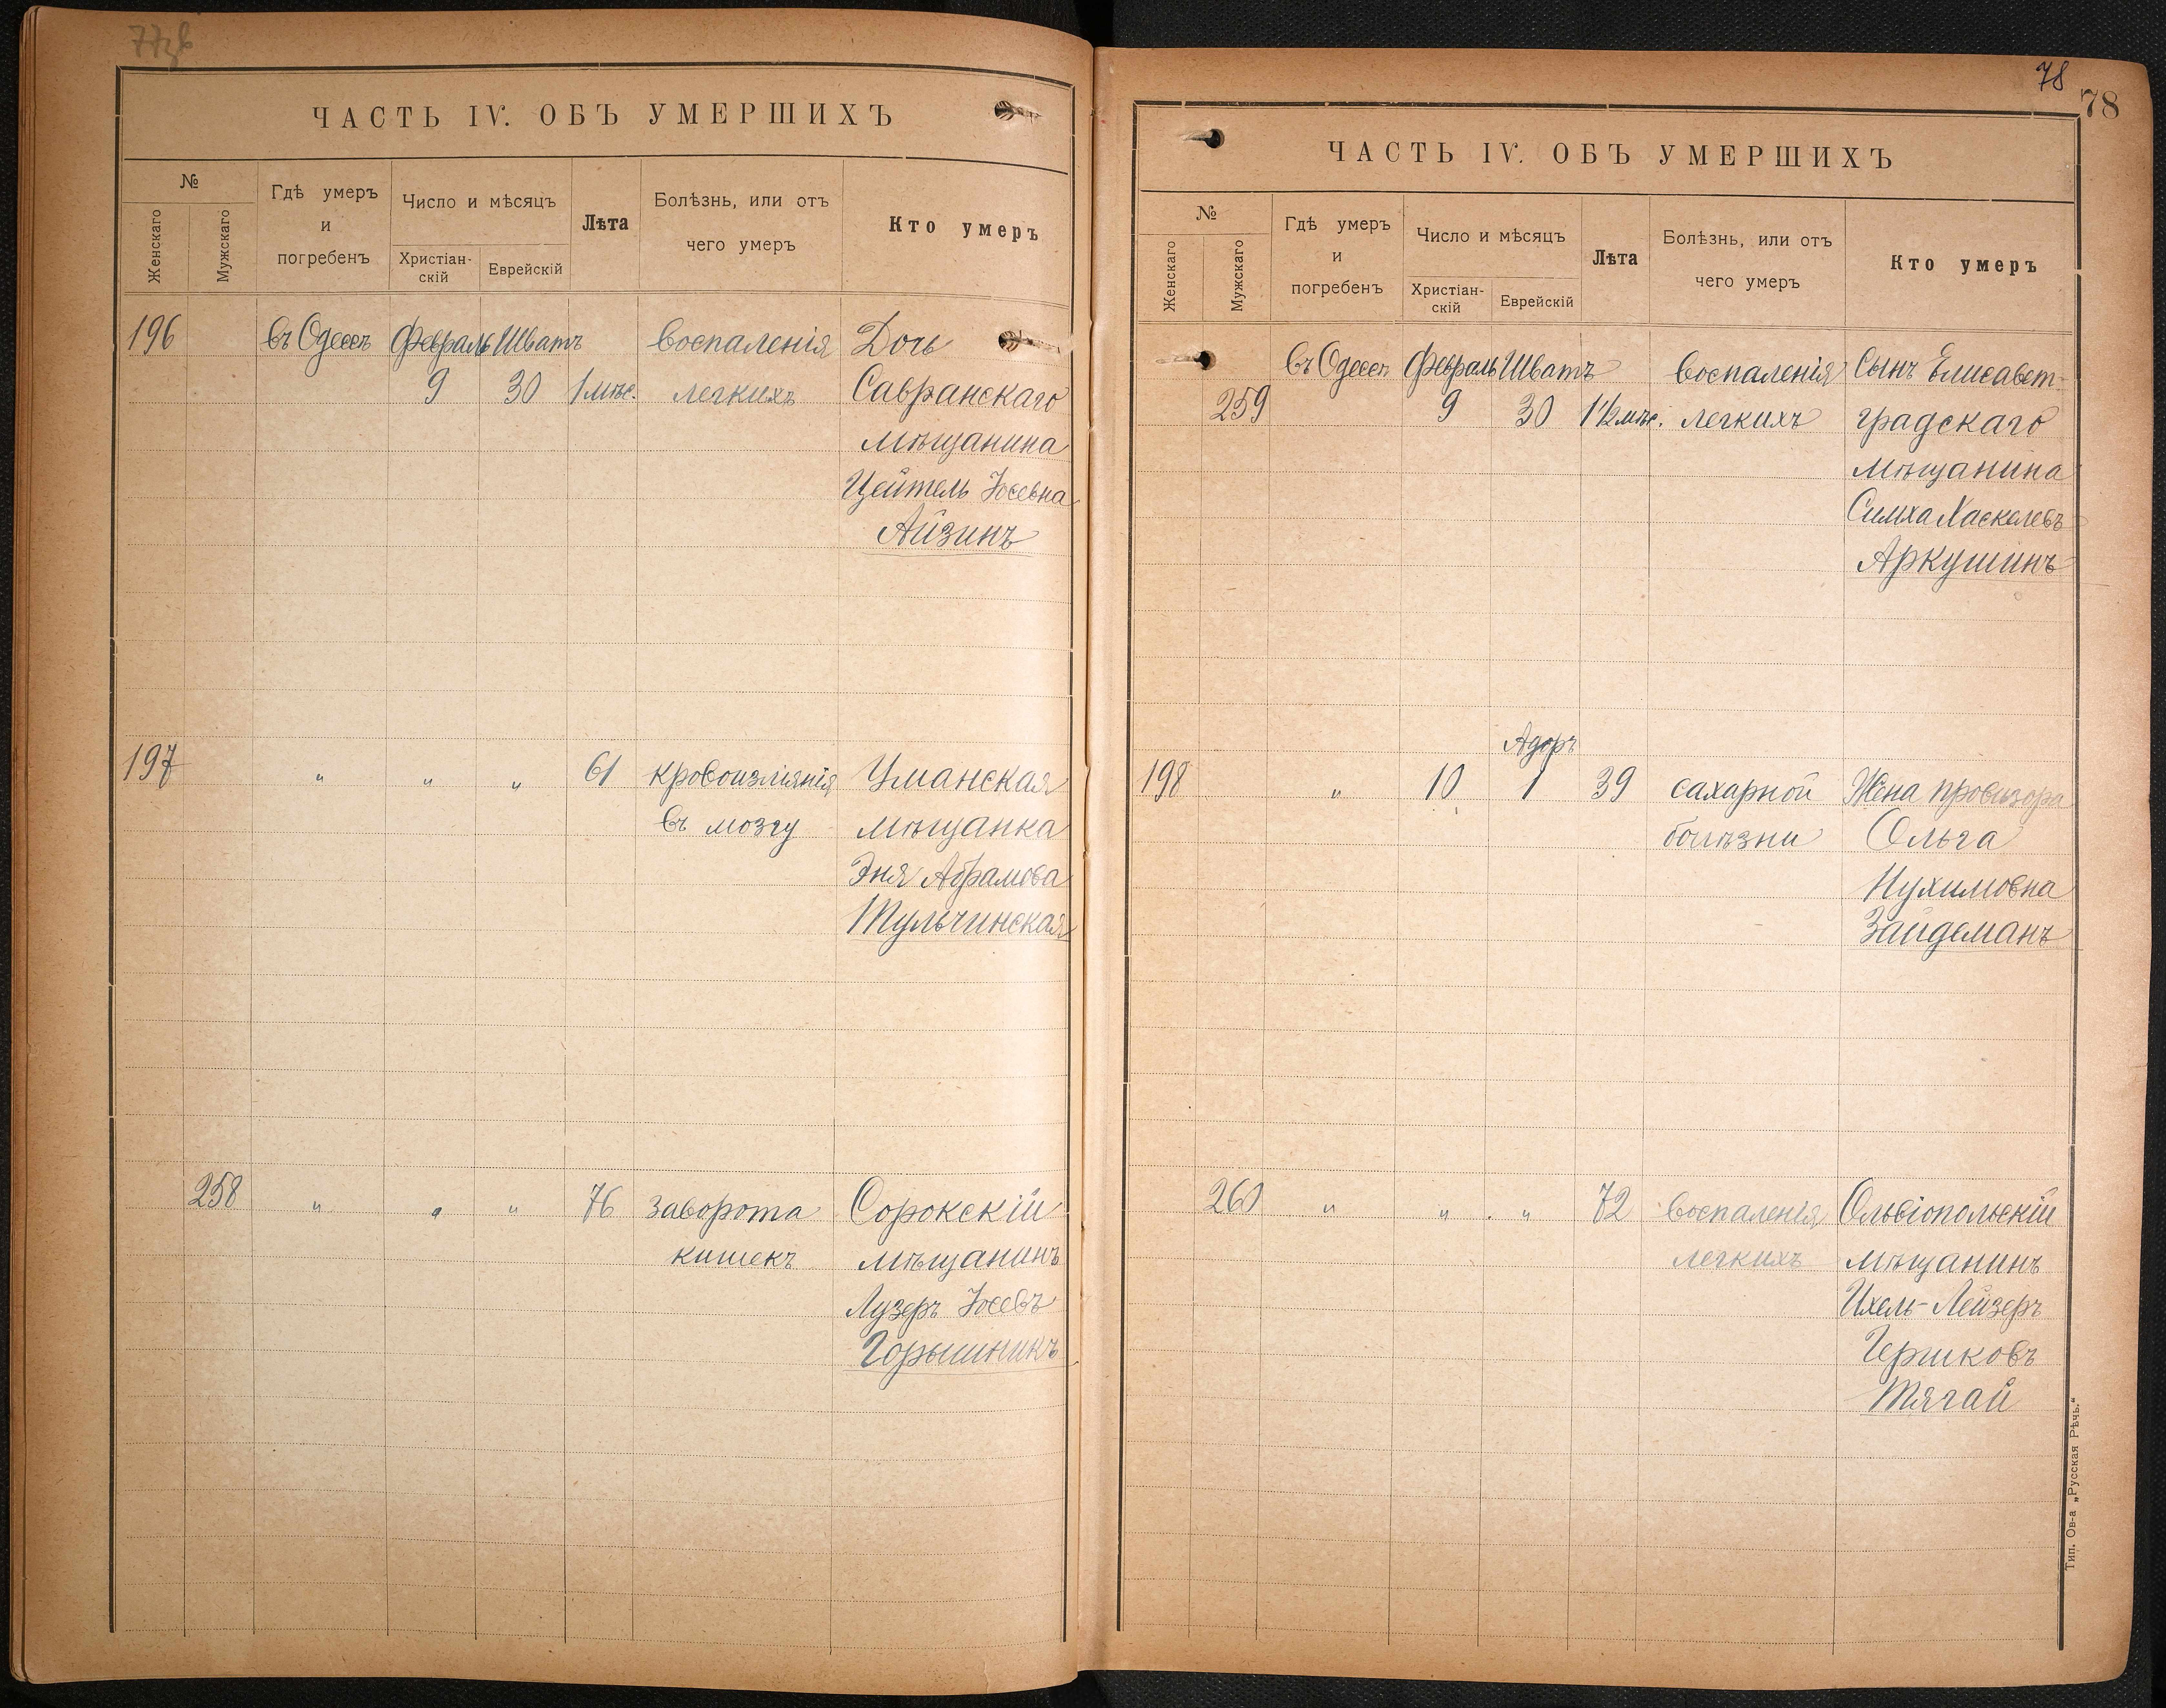 77об
ЧАСТЬ IV. ОБЪ УМЕРШИХЪ
№
Женскаго
Мужскаго
Гдѣ умеръ
и
погребенъ
Число и мѣсяцъ
Христіан-
скій
Еврейскій
Лѣта
Болѣзнь, или отъ
чего умеръ
Кто умеръ
196 въ Одессѣ Февраль Шватъ воспаленія Дочь
9 30 1 мѣс. легкихъ Савранскаго
мѣщанина
Цейтель Іосевна
Айзинъ
197 " " " 61 кровоизліянія Уманская
въ мозгу мѣщанка
Эня Абрамова
Тульчинская
258 " " " 76 заворота Сорокскій
кишекъ мѣщанинъ
Лузеръ Іосевъ
Горышникъ
78
78
ЧАСТЬ IV. ОБЪ УМЕРШИХЪ
№
Женскаго
Мужскаго
Гдѣ умеръ
и
погребенъ
Число и мѣсяцъ
Христіан-
скій
Еврейскій
Лѣта
Болѣзнь, или отъ
чего умеръ
Кто умеръ
въ Одессѣ Февраль Шватъ воспаленія Сынъ Елисавет-
259 9 30 1½ мѣс. легкихъ градскаго
мѣщанина
Симха Хаскелевъ
Аркушинъ
Адоръ
198 " 10 1 39 сахарной Жена провизора
болѣзни Ольга
Нухимовна
Зайдеманъ
260 " " " 72 воспаленія Ольвіопольскій
легкихъ мѣщанинъ
Ихель-Лейзеръ
Гершковъ
Тягай
Тип. Ов-а „Русская Рѣчь.“